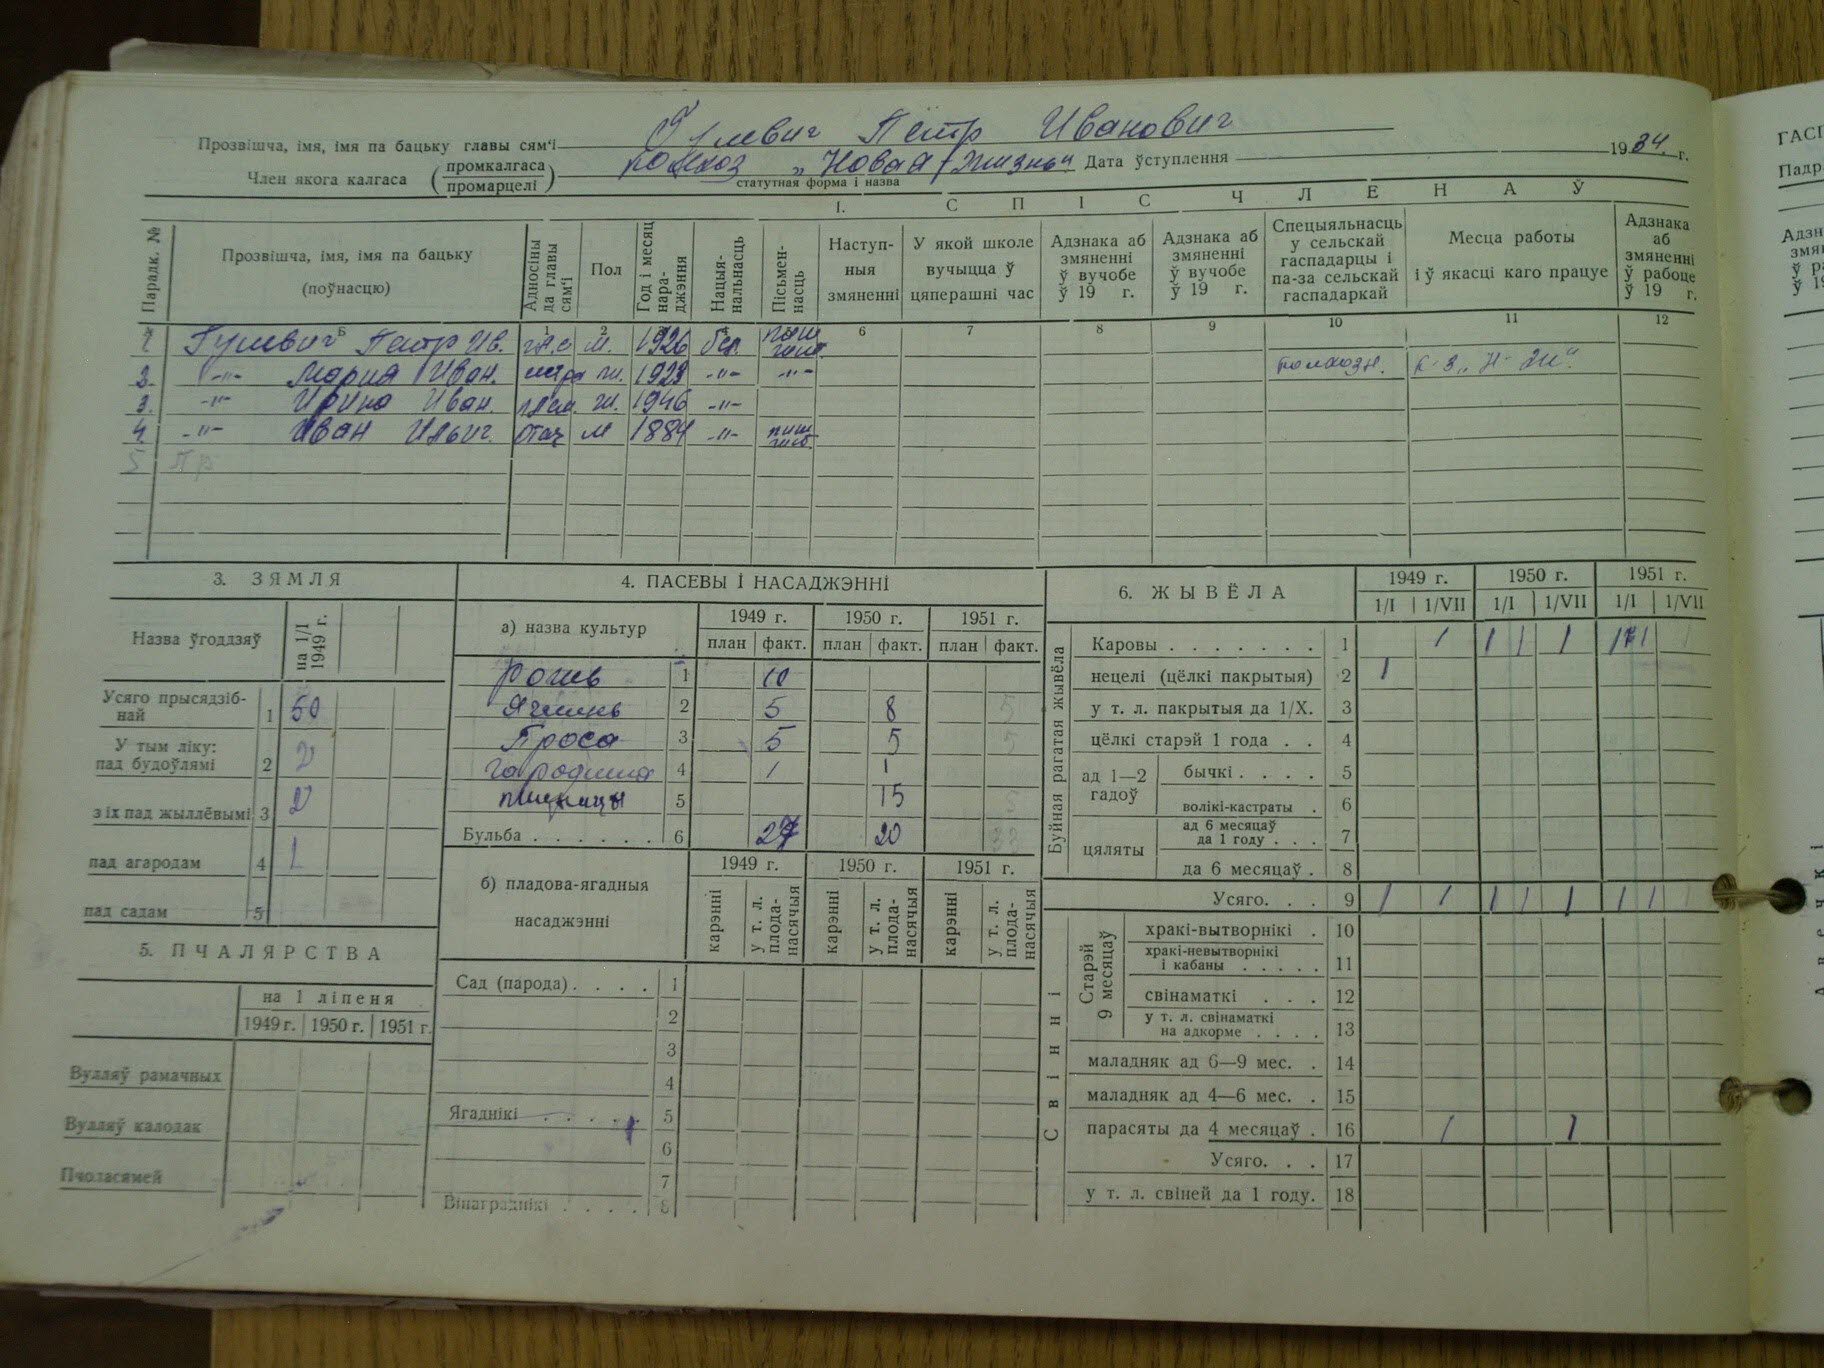 Пётр Иванович
Прозвішча, імя, імя па бацьку главы сям'і
1934 г.
Член якога калгаса (промкалгаса промарцелі) колхоз „Новая Жизнь" Дата ўступлення
статутная форма і назва
І. СПІС ЧЛЕНАЎ
Парадк. №
Прозвішча, імя, імя па бацьку (поўнасцю)
Адносіны да главы сям'і
Пол
Год і месяц нараджэння
Нацыянальнасць
Пісьменнасць
Наступныя змяненні
У якой школе вучыцца ў цяперашні час
Адзнака аб змяненні ў вучобе ў 19 г.
Адзнака аб змяненні ў вучобе ў 19 г.
Спецыяльнасць у сельскай гаспадарцы і па-за сельскай гаспадаркай
Месца работы і ў якасці каго працуе
Адзнака аб змяненні ў рабоце ў 19 г.
Б 1 2 6 7 8 9 10 11 12
Пётр Ив. м. 1926 бел.
2. -"- Мария Иван. ж. 1923 -"- -"- колхозн.
3. -"- Ирина Иван. ж. 1946 -"-
4. -"- Иван Ильич отец м 1884 -"-
5 Пр
3. ЗЯМЛЯ
Назва ўгоддзяў
на 1/I 1949 г.
Усяго прысядзібнай 1 50
У тым ліку: пад будоўлямі 2 2
з іх пад жыллёвымі 3
пад агародам 4
пад садам 5
5. ПЧАЛЯРСТВА
на 1 ліпеня
1949 г. 1950 г. 1951 г.
Вулляў рамачных
Вулляў калодак
Пчоласямей
4. ПАСЕВЫ І НАСАДЖЭННІ
а) назва культур
1949 г. 1950 г. 1951 г.
план факт. план факт. план факт.
1 10
Ячмень 2 5 8 5
Проса 3 5 5 5
4 1 1
пшеницы 5 15
Бульба . . . . . . 6 20
б) пладова-ягадныя насаджэнні
1949 г. 1950 г. 1951 г.
карэнні у т. л. плоданасячыя карэнні у т. л. плоданасячыя карэнні у т. л. плоданасячыя
Сад (парода) . . . . 1
2
3
4
Ягаднікі . . . . 5
6
7
Вінаграднікі . . . . 8
6. ЖЫВЁЛА
1949 г. 1950 г. 1951 г.
1/I 1/VII 1/I 1/VII 1/I 1/VII
Буйная рагатая жывёла
Каровы . . . . . . . 1 1 1 1 1
нецелі (цёлкі пакрытыя) 2 1
у т. л. пакрытыя да 1/X. 3
цёлкі старэй 1 года . . 4
ад 1—2 гадоў
бычкі . . . . 5
волікі-кастраты . 6
цяляты
ад 6 месяцаў да 1 году . . . 7
да 6 месяцаў . 8
Усяго. . . 9 1 1 1 1 1 1 1
Свінні
Старэй 9 месяцаў
хракі-вытворнікі . 10
хракі-невытворнікі і кабаны . . . . . 11
свінаматкі . . . 12
у т. л. свінаматкі на адкорме . . . . 13
маладняк ад 6—9 мес. . 14
маладняк ад 4—6 мес. . 15
парасяты да 4 месяцаў . 16 1 1
Усяго. . . 17
у т. л. свіней да 1 году. 18